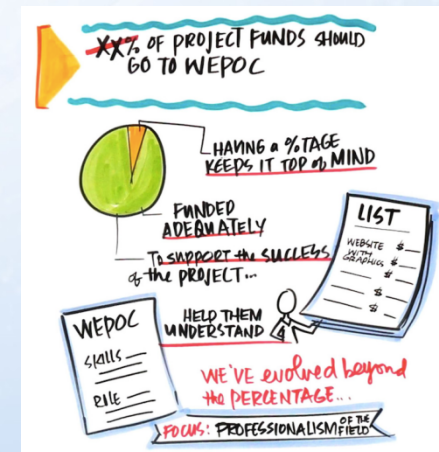 XX% OF PROJECT FUNDS SHOULD
GO TO WEPOC
HAVING a %TAGE
KEEPS IT TOP of MIND
FUNDED
ADEQUATELY
TO SUPPORT the SUCCESS
of the PROJECT...
LIST
WEBSITE $
WITH
GRAPHICS $
$
$
HELP THEM
UNDERSTAND
WEPOC
SKILLS
ROLE
WE'VE evolved beyond
the PERCENTAGE...
FOCUS: PROFESSIONALISM OF THE
FIELD